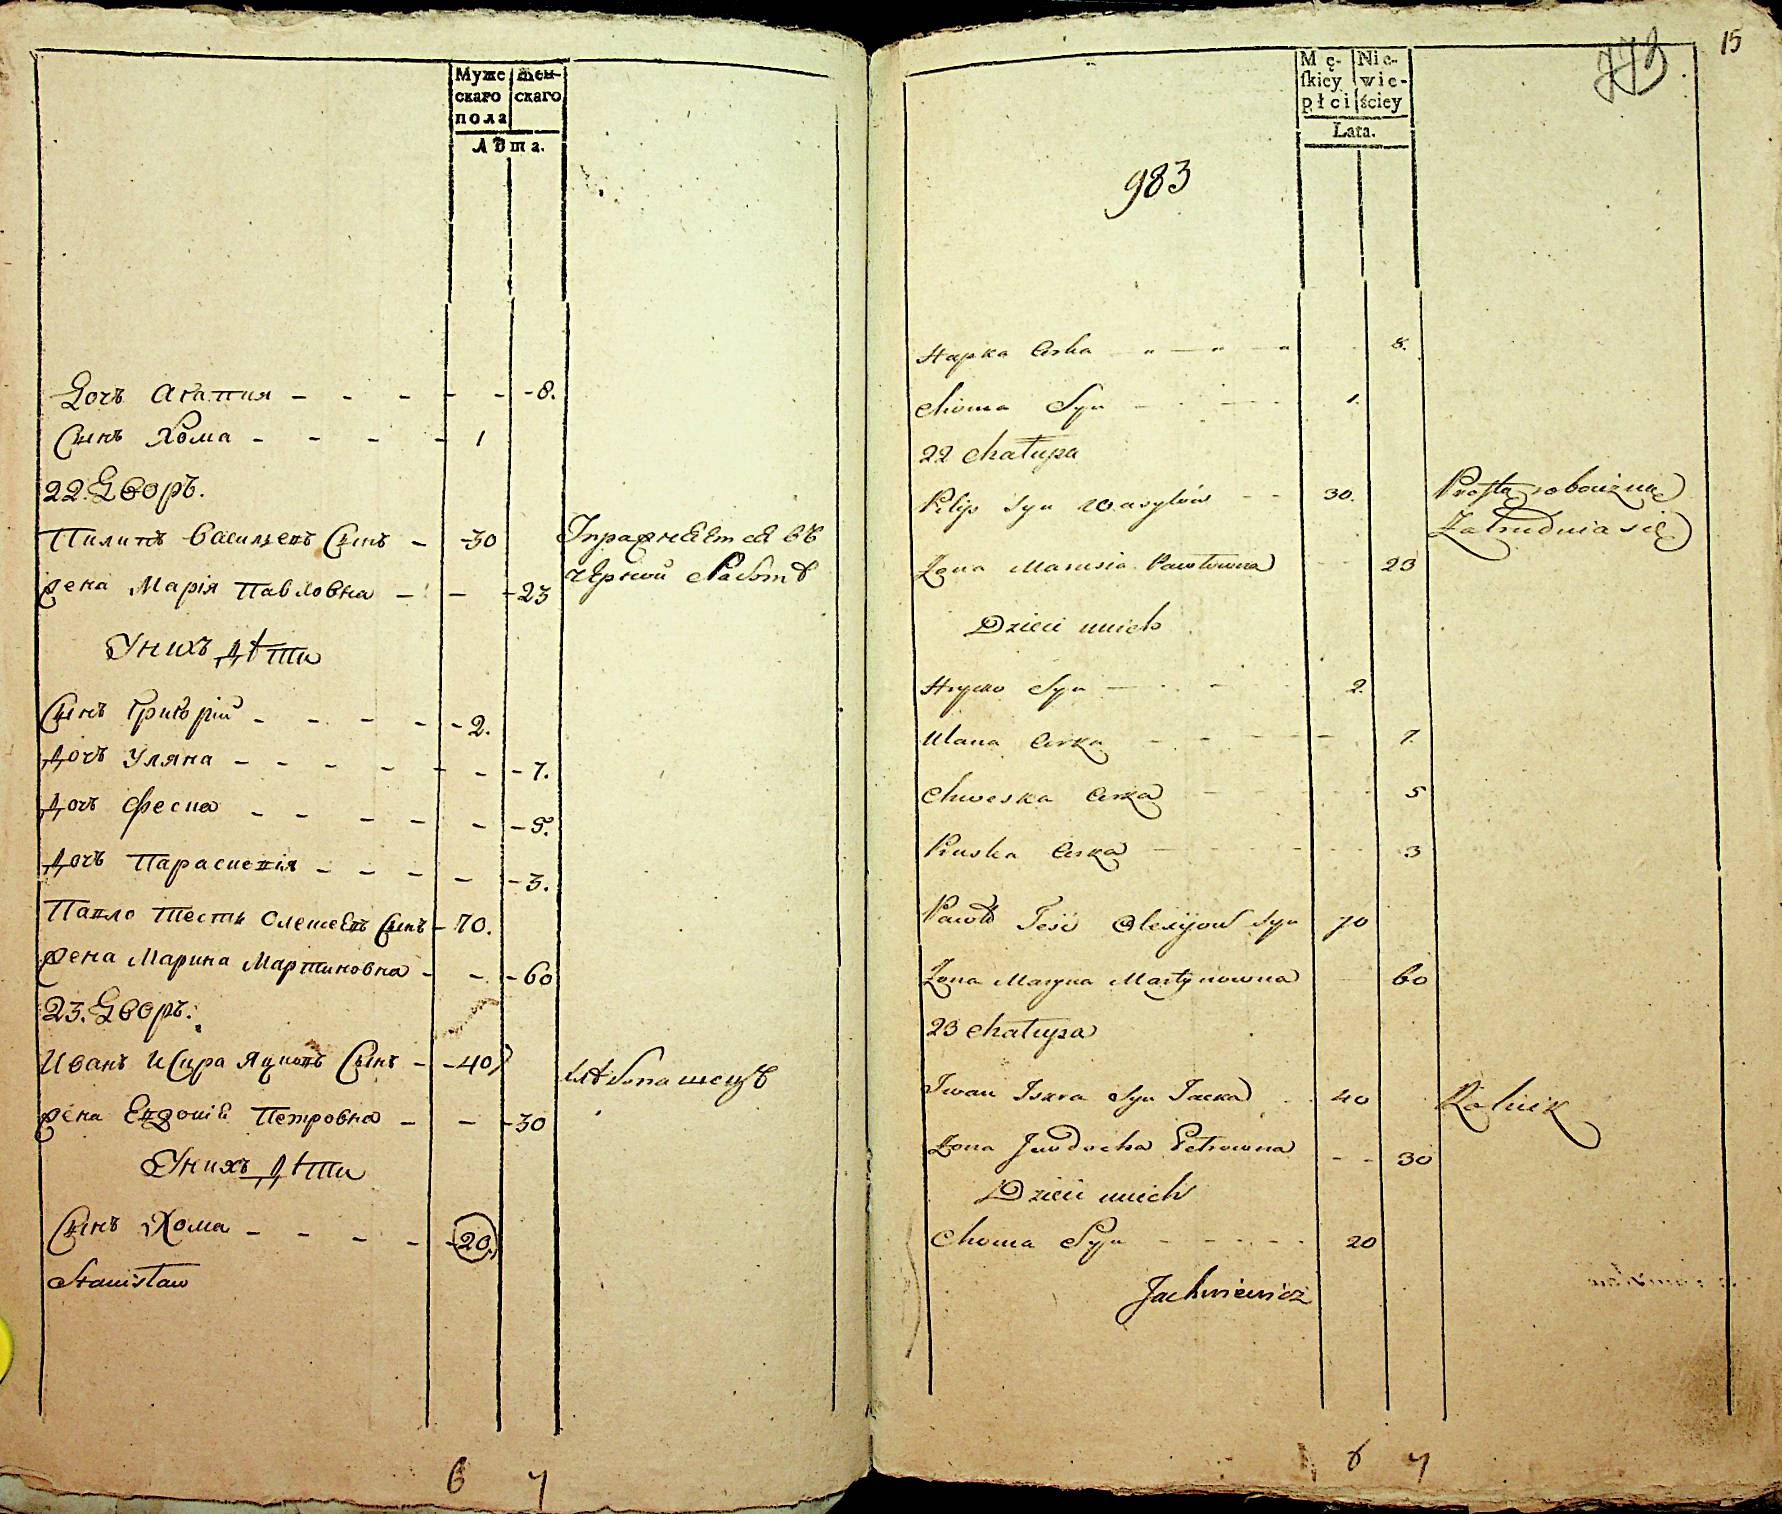 Муже
скаго
пола
Жен
скаго
Лѣта.
Дочъ Агапия - - - - - 8.
Сынъ Хома - - - - 1
22. Дворъ.
Пилипъ Васильевъ Сынъ - 30
Упражняется въ
чѣрной Работѣ
жена Марія Павловна - - 23
У нихъ дѣти
Сынъ Григорій - - - - 2.
Дочъ Уляна - - - - - - 7.
Дочъ Феска - - - - - 5.
Дочъ Парасковія - - - - 3.
Павло Тесть Олексеевъ Сынъ - 70.
жена Марина Мартиновна - - 60
23. Дворъ.
Иванъ Искра Яцковъ Сынъ - 40
хлѣбопашецъ
жена Евдокія Петровна - - 30
У нихъ дѣти
Сынъ Хома - - - - 20.
Stanisław
6 7
15
Mę-
ſkiey
płci
Nie-
wie-
ściey
Lata.
983
Hapka Corka - - - 8.
Choma Syn - - - 1.
22 Chałupa
Pilip Syn Wasylów - - 30.
Prostą robocizną
Zatrudnia się
Żona Marusia Pawłowna - - 23
Dzieci u nich
Hrycko Syn - - - 2.
Ulana Corka - - - - - 7.
Chweska Corka - - - - 5
Pruska Corka - - - - 3
Paweł Teść Olexijow Syn 70
Żona Maryna Martynowna 60
23 Chałupa
Iwan Iskra Syn Jacka - 40
Rolnik
Żona Jewdocha Petrowna - - 30
Dzieci u nich
Choma Syn - - - - - 20
Jachniewicz
6 7